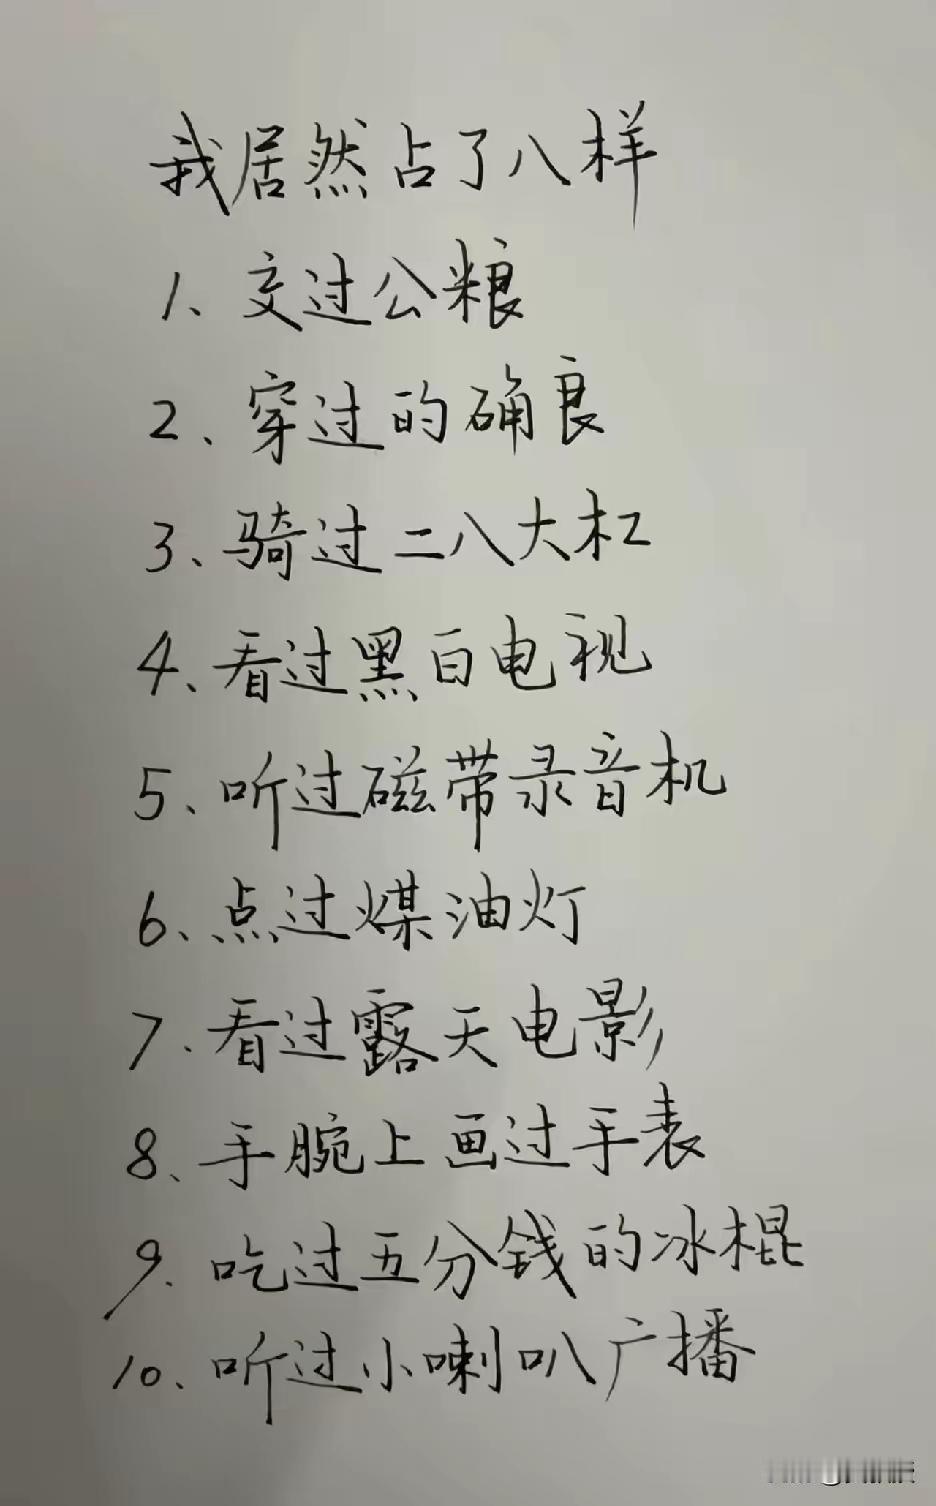 我居然占了八样
1、交过公粮
2、穿过的确良
3、骑过二八大杠
4、看过黑白电视
5、听过磁带录音机
6、点过煤油灯
7、看过露天电影
8、手腕上画过手表
9、吃过五分钱的冰棍
10、听过小喇叭广播